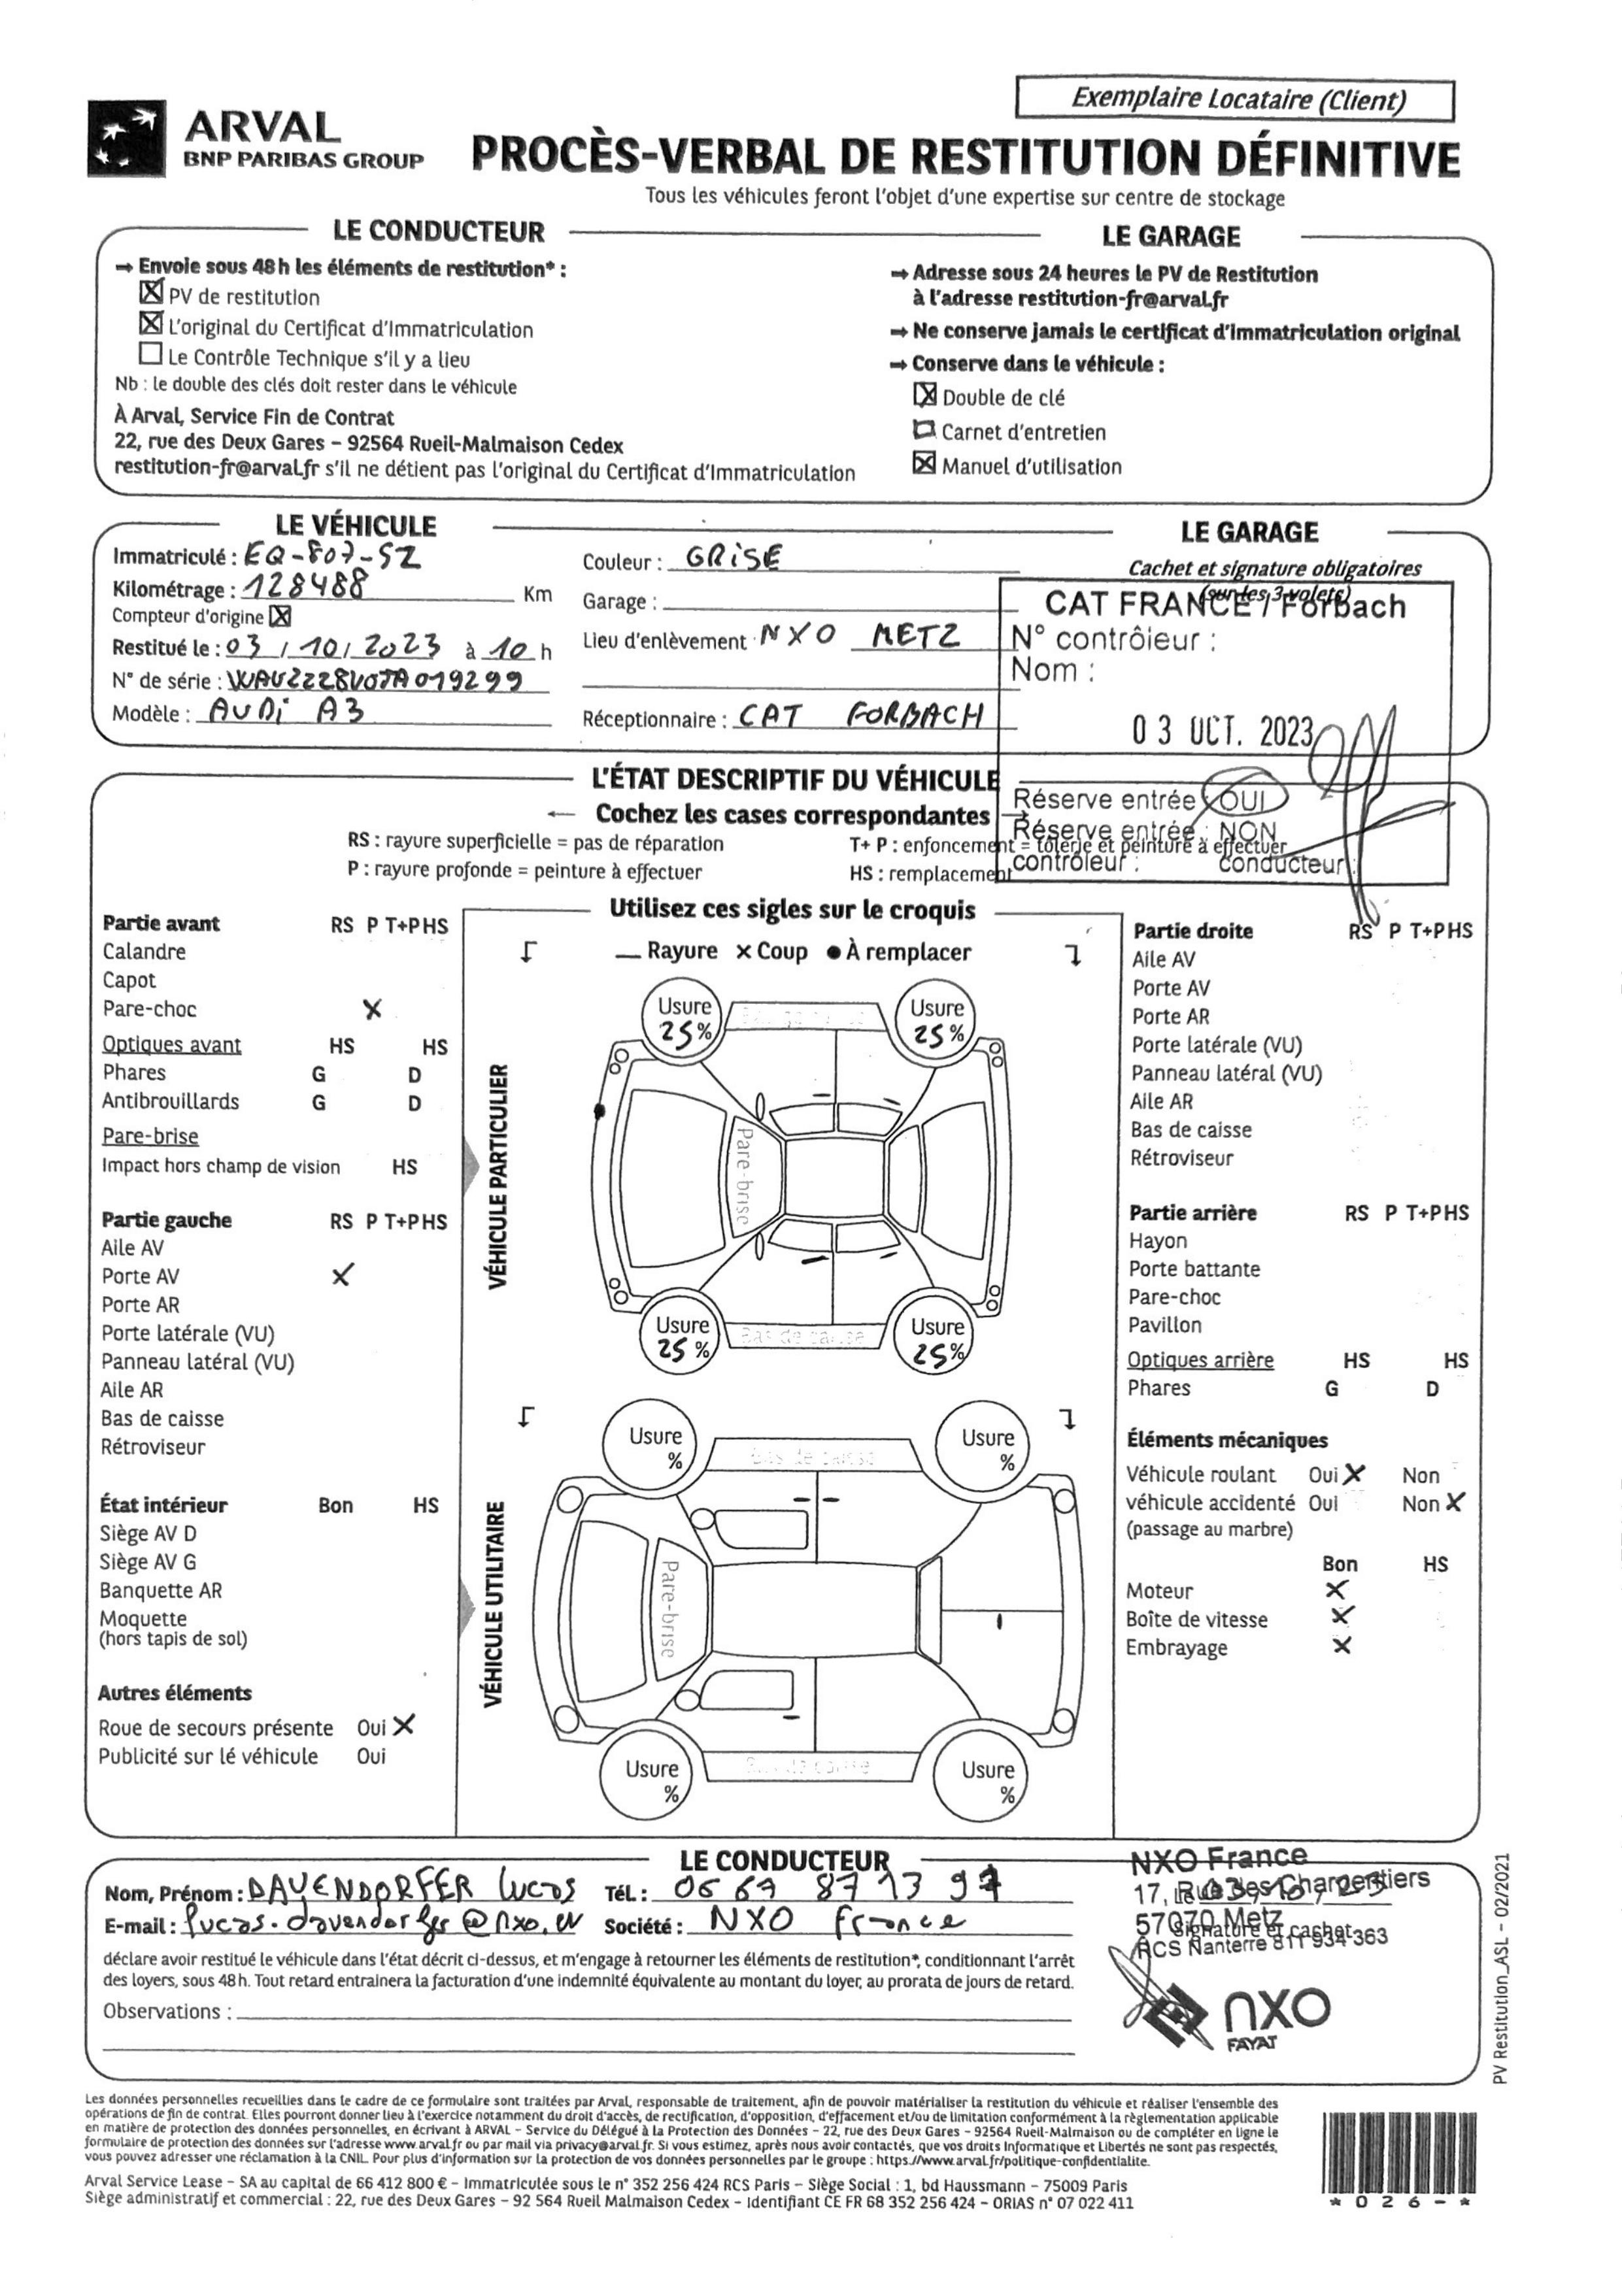 Exemplaire Locataire (Client)
ARVAL
BNP PARIBAS GROUP
PROCÈS-VERBAL DE RESTITUTION DÉFINITIVE
Tous les véhicules feront l'objet d'une expertise sur centre de stockage
LE CONDUCTEUR
→ Envoie sous 48 h les éléments de restitution* :
☒ PV de restitution
☒ L'original du Certificat d'Immatriculation
☐ Le Contrôle Technique s'il y a lieu
Nb : le double des clés doit rester dans le véhicule
À Arval, Service Fin de Contrat
22, rue des Deux Gares – 92564 Rueil-Malmaison Cedex
restitution-fr@arval.fr s'il ne détient pas l'original du Certificat d'Immatriculation
LE GARAGE
→ Adresse sous 24 heures le PV de Restitution
à l'adresse restitution-fr@arval.fr
→ Ne conserve jamais le certificat d'immatriculation original
→ Conserve dans le véhicule :
☒ Double de clé
☐ Carnet d'entretien
☒ Manuel d'utilisation
LE VÉHICULE
Immatriculé : EQ-807-SZ
Kilométrage : 128488 Km
Compteur d'origine ☒
Restitué le : 03 / 10 / 2023 à 10 h
N° de série : WAUZZZ8V0JA019299
Modèle : AUDi A3
Couleur : GRiSE
Garage :
Lieu d'enlèvement : NXO METZ
Réceptionnaire : CAT FORBACH
LE GARAGE
Cachet et signature obligatoires
(sur les 3 volets)
CAT FRANCE / Forbach
N° contrôleur :
Nom :
03 OCT. 2023
Réserve entrée : OUI
Réserve entrée : NON
contrôleur : conducteur :
L'ÉTAT DESCRIPTIF DU VÉHICULE
← Cochez les cases correspondantes →
RS : rayure superficielle = pas de réparation
P : rayure profonde = peinture à effectuer
T+ P : enfoncement = tôlerie et peinture à effectuer
HS : remplacement
Utilisez ces sigles sur le croquis
— Rayure × Coup ● À remplacer
Partie avant RS P T+P HS
Calandre
Capot
Pare-choc X
Optiques avant HS HS
Phares G D
Antibrouillards G D
Pare-brise
Impact hors champ de vision HS
Partie gauche RS P T+P HS
Aile AV
Porte AV X
Porte AR
Porte latérale (VU)
Panneau latéral (VU)
Aile AR
Bas de caisse
Rétroviseur
État intérieur Bon HS
Siège AV D
Siège AV G
Banquette AR
Moquette
(hors tapis de sol)
Autres éléments
Roue de secours présente Oui X
Publicité sur lé véhicule Oui
VÉHICULE PARTICULIER
Usure
25 %
Usure
25 %
Pare-brise
Usure
25 %
Bas de caisse
Usure
25 %
VÉHICULE UTILITAIRE
Usure
%
Bas de caisse
Usure
%
Pare-brise
Usure
%
Bas de caisse
Usure
%
Partie droite RS P T+P HS
Aile AV
Porte AV
Porte AR
Porte latérale (VU)
Panneau latéral (VU)
Aile AR
Bas de caisse
Rétroviseur
Partie arrière RS P T+P HS
Hayon
Porte battante
Pare-choc
Pavillon
Optiques arrière HS HS
Phares G D
Éléments mécaniques
Véhicule roulant Oui X Non
véhicule accidenté Oui Non X
(passage au marbre)
Bon HS
Moteur X
Boîte de vitesse X
Embrayage X
LE CONDUCTEUR
Nom, Prénom : DAVENDORFER Lucas Tél. : 06 67 87 13 97
E-mail : lucas.davendorfer@nxo.eu Société : NXO France
déclare avoir restitué le véhicule dans l'état décrit ci-dessus, et m'engage à retourner les éléments de restitution*, conditionnant l'arrêt
des loyers, sous 48 h. Tout retard entrainera la facturation d'une indemnité équivalente au montant du loyer, au prorata de jours de retard.
Observations :
NXO France
17, Rue des Charpentiers
57070 Metz
Signature et cachet
RCS Nanterre 811 934 363
nxo
FAYAT
PV Restitution_ASL – 02/2021
Les données personnelles recueillies dans le cadre de ce formulaire sont traitées par Arval, responsable de traitement, afin de pouvoir matérialiser la restitution du véhicule et réaliser l'ensemble des
opérations de fin de contrat. Elles pourront donner lieu à l'exercice notamment du droit d'accès, de rectification, d'opposition, d'effacement et/ou de limitation conformément à la règlementation applicable
en matière de protection des données personnelles, en écrivant à ARVAL – Service du Délégué à la Protection des Données – 22, rue des Deux Gares – 92564 Rueil-Malmaison ou de compléter en ligne le
formulaire de protection des données sur l'adresse www.arval.fr ou par mail via privacy@arval.fr. Si vous estimez, après nous avoir contactés, que vos droits Informatique et Libertés ne sont pas respectés,
vous pouvez adresser une réclamation à la CNIL. Pour plus d'information sur la protection de vos données personnelles par le groupe : https://www.arval.fr/politique-confidentialite.
Arval Service Lease – SA au capital de 66 412 800 € – Immatriculée sous le n° 352 256 424 RCS Paris – Siège Social : 1, bd Haussmann – 75009 Paris
Siège administratif et commercial : 22, rue des Deux Gares – 92 564 Rueil Malmaison Cedex – Identifiant CE FR 68 352 256 424 – ORIAS n° 07 022 411
* 0 2 6 – *